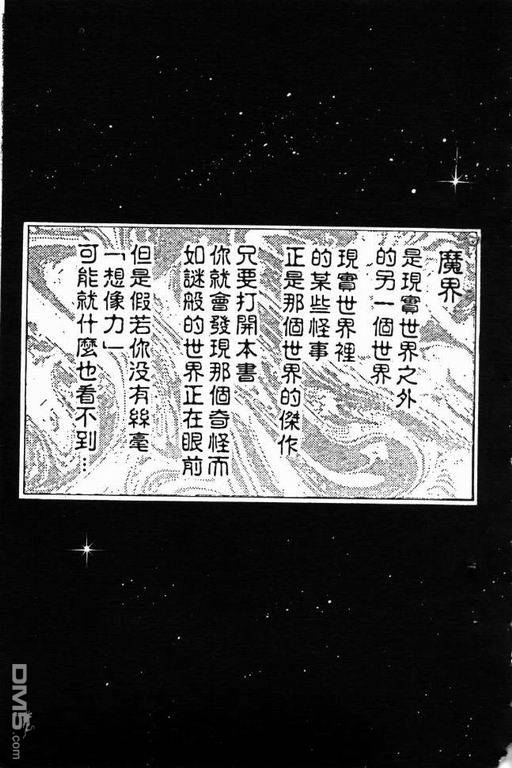 魔界
是現實世界之外
的另一個世界
現實世界裡
的某些怪事
正是那個世界的傑作
只要打開本書
你就會發現那個奇怪而
如謎般的世界正在眼前
但是假若你没有絲毫
「想像力」
可能就什麼也看不到…
DM5.com